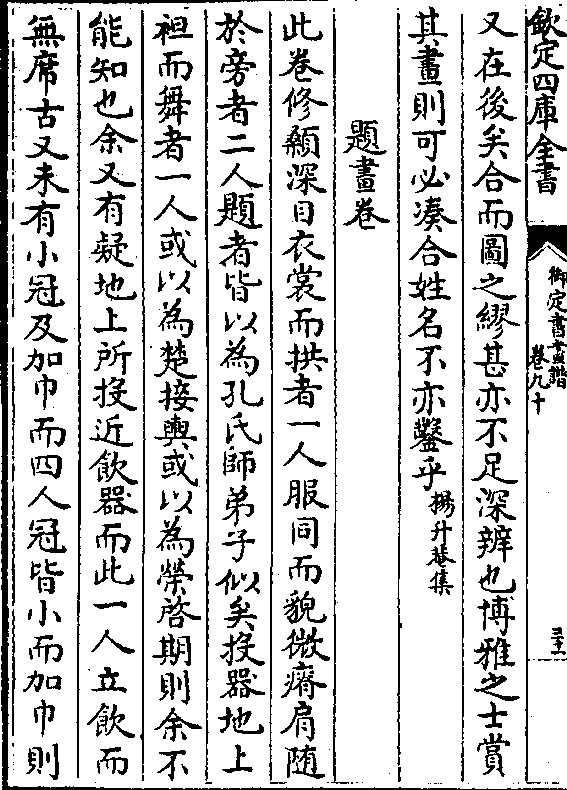 欽定四庫全書
御定書畫譜
卷九十
三十一
又在後矣合而圖之繆甚亦不足深辨也博雅之士賞
其畫則可必湊合姓名不亦鑿乎楊升菴集
題畫卷
此卷修顙深目衣裳而拱者一人服同而貌微瘠肩随
於旁者二人題者皆以為孔氏師弟子似矣投器地上
袒而舞者一人或以為楚接輿或以為榮啓期則余不
能知也余又有疑地上所投近飲器而此一人立飲而
無席古又未有小冠及加巾而四人冠皆小而加巾則